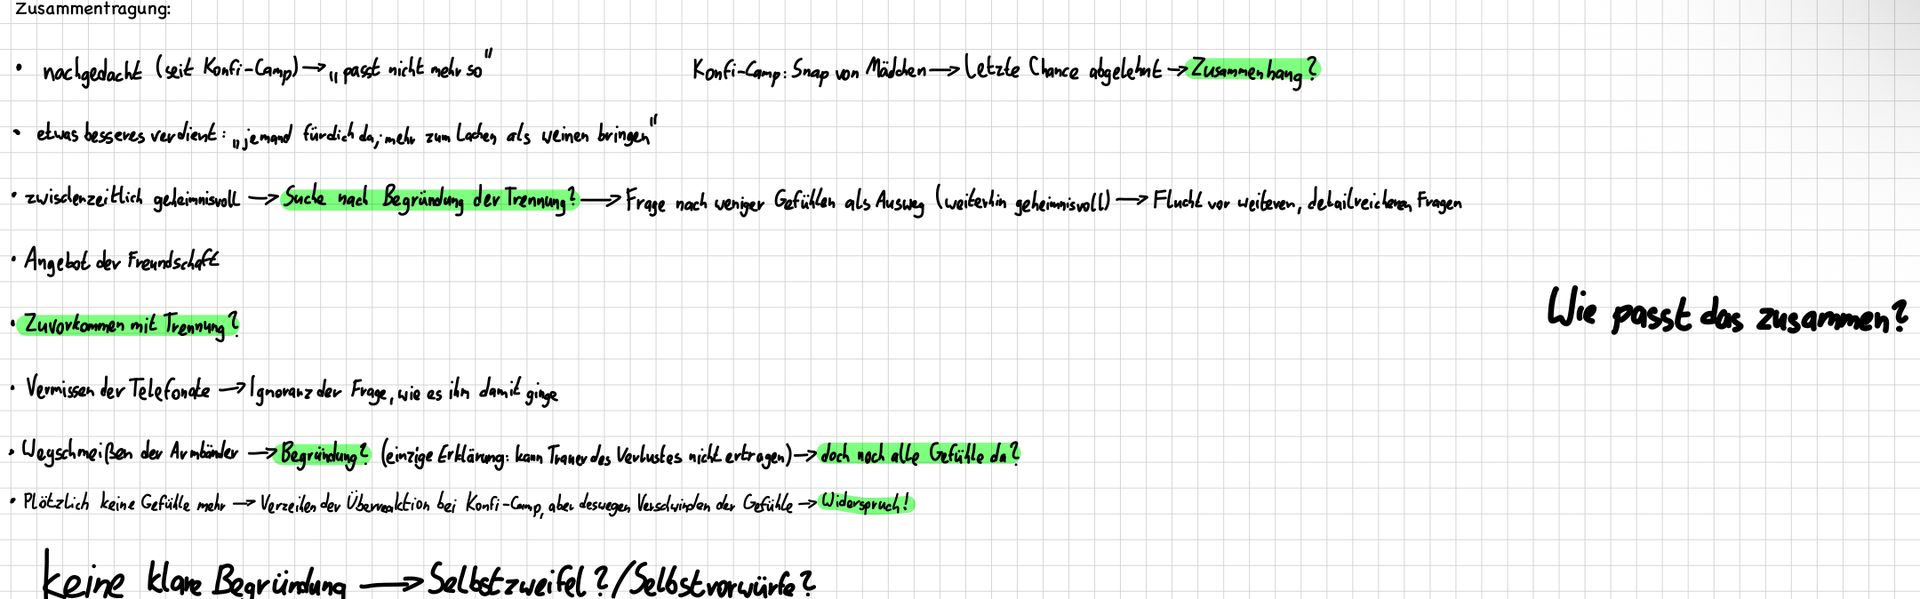 Zusammentragung:
• nachgedacht (seit Konfi-Camp) → „passt nicht mehr so"
Konfi-Camp: Snap von Mädchen → Letzte Chance abgelehnt → Zusammenhang?
• etwas besseres verdient: „jemand für dich da; mehr zum Lachen als weinen bringen"
• zwischenzeitlich geheimnisvoll → Suche nach Begründung der Trennung? → Frage nach weniger Gefühlen als Ausweg (weiterhin geheimnisvoll) → Flucht vor weiteren, detailreicheren Fragen
• Angebot der Freundschaft
Wie passt das zusammen?
• Zuvorkommen mit Trennung?
• Vermissen der Telefonate → Ignoranz der Frage, wie es ihm damit ginge
• Wegschmeißen der Armbänder → Begründung? (einzige Erklärung: kann Trauer des Verlustes nicht ertragen) → doch noch alle Gefühle da?
• Plötzlich keine Gefühle mehr → Verzeihen der Überreaktion bei Konfi-Camp, aber deswegen Verschwinden der Gefühle → Widerspruch!
keine klare Begründung → Selbstzweifel?/Selbstvorwürfe?